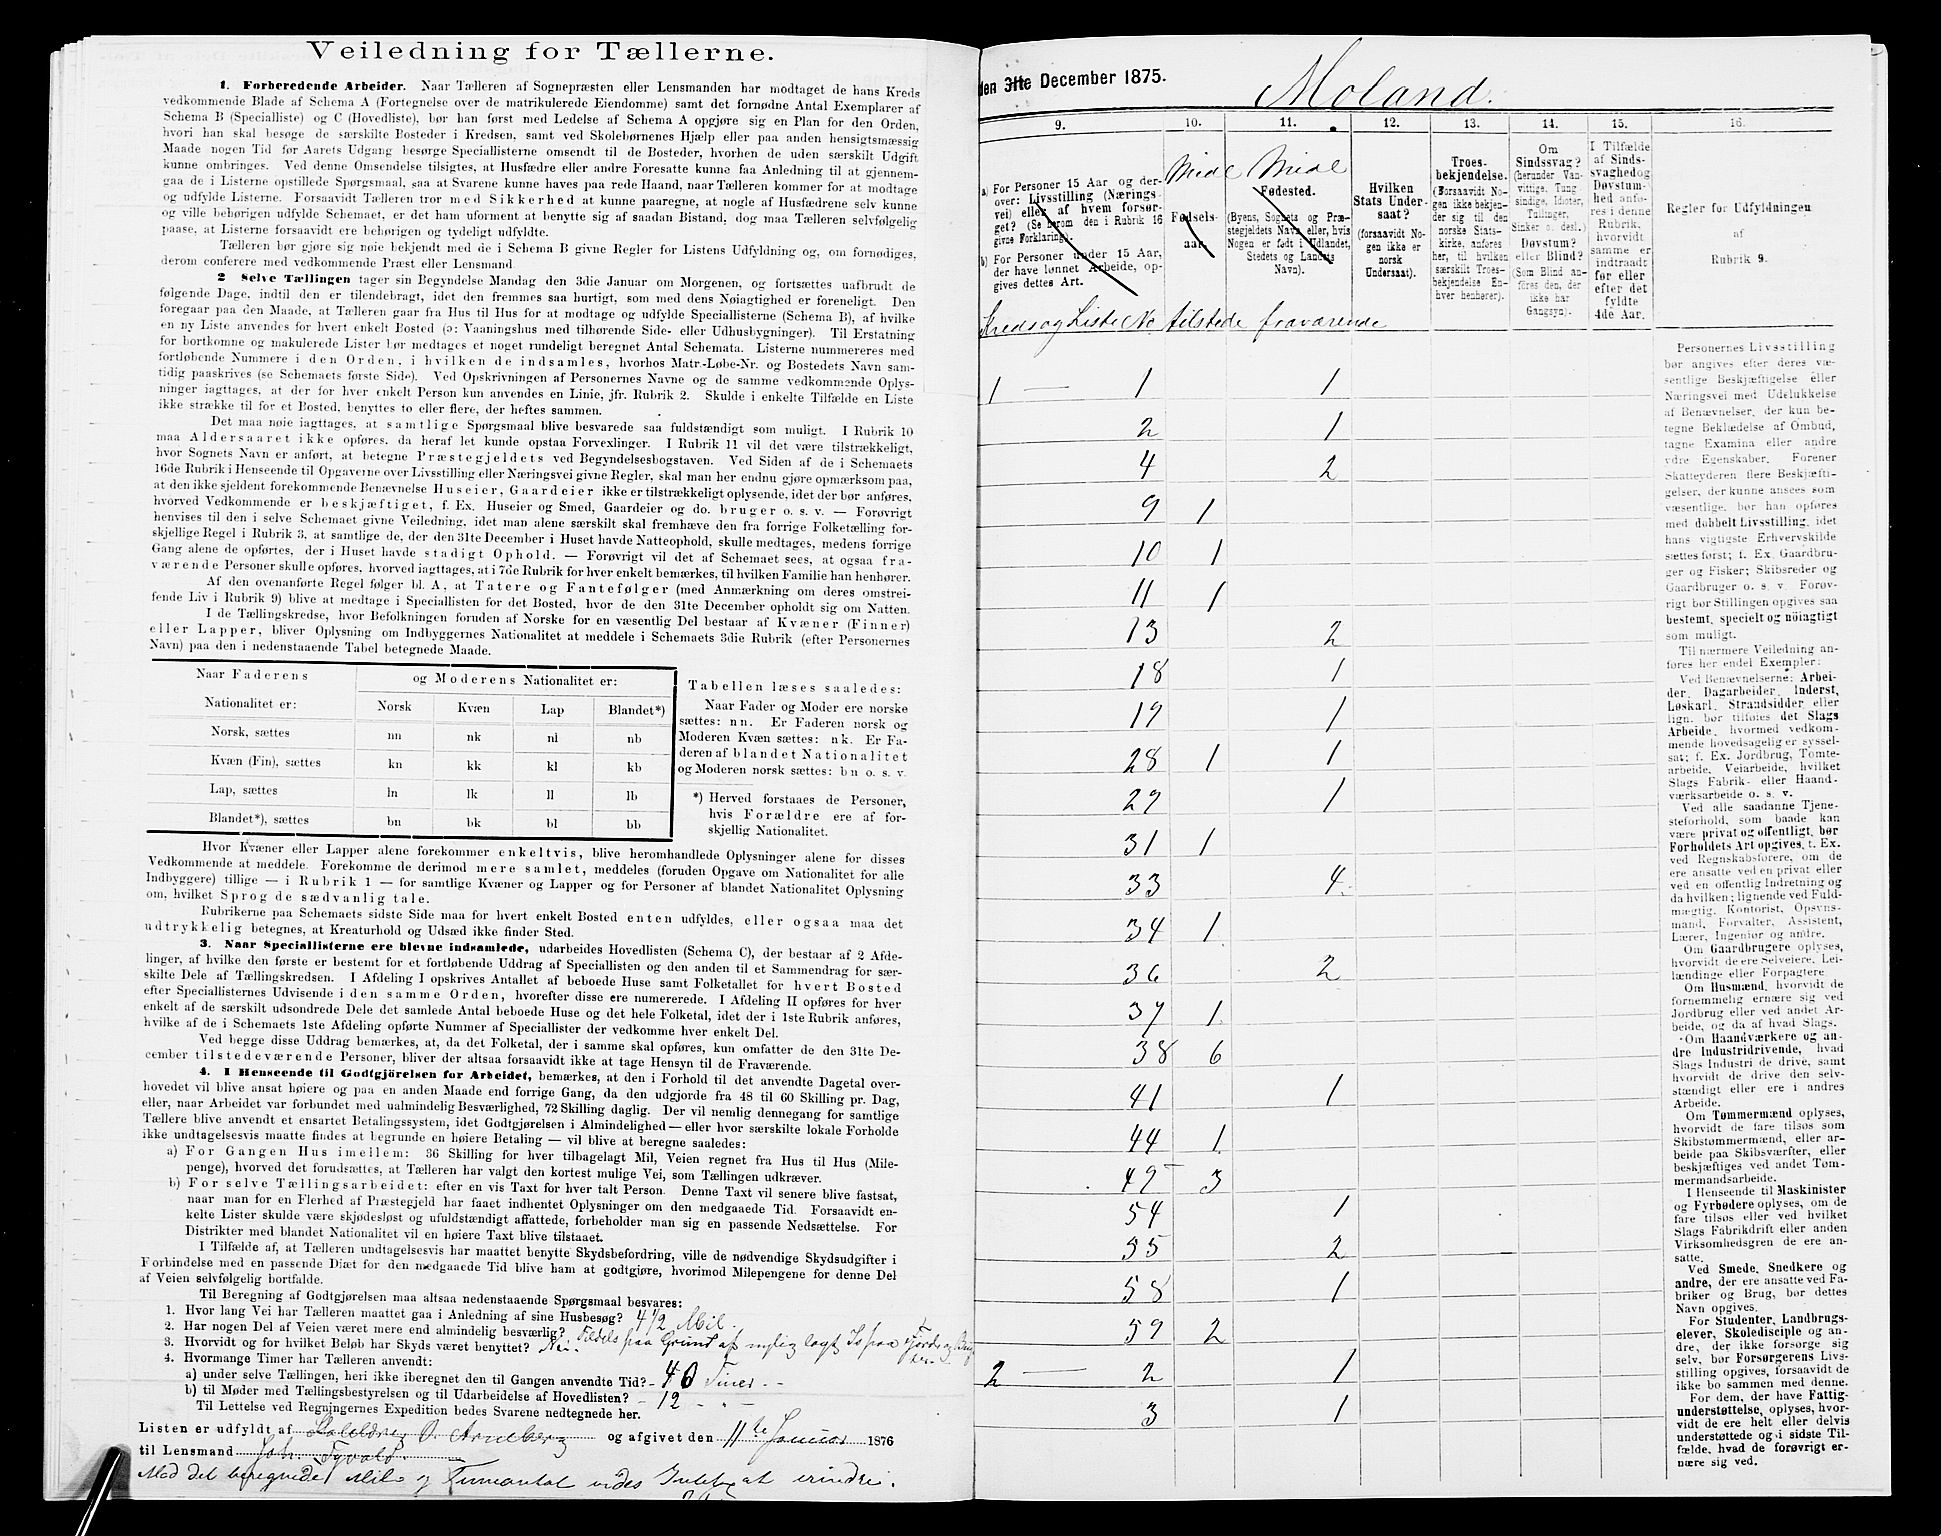 Veiledning for Tællerne.
1. Forberedende Arbeider. Naar Tælleren af Sognepræsten eller Lensmanden har modtaget de hans Kreds
vedkommende Blade af Schema A (Fortegnelse over de matrikulerede Eiendomme) samt det fornødne Antal Exemplarer af
Schema B (Specialliste) og C (Hovedliste), bør han først med Ledelse af Schema A opgjøre sig en Plan for den Orden,
hvori han skal besøge de særskilte Bosteder i Kredsen, samt ved Skolebørnenes Hjælp eller paa anden hensigtsmæssig
Maade nogen Tid før Aarets Udgang besørge Speciallisterne omsendt til de Bosteder, hvorhen de uden særskilt Udgift
kunne ombringes. Ved denne Omsendelse tilsigtes, at Husfædre eller andre Foresatte kunne faa Anledning til at gjennem-
gaa de i Listerne opstillede Spørgsmaal, saa at Svarene kunne haves paa rede Haand, naar Tælleren kommer for at modtage
og udfylde Listerne. Forsaavidt Tælleren tror med Sikkerhed at kunne paaregne, at nogle af Husfædrene selv kunne
og ville behørigen udfylde Schemaet, er det ham uforment at benytte sig af saadan Bistand, dog maa Tælleren selvfølgelig
paase, at Listerne forsaavidt ere behørigen og tydeligt udfyldte.
Tælleren bør gjøre sig nøie bekjendt med de i Schema B givne Regler for Listens Udfyldning og, om fornødiges,
derom conferere med vedkommende Præst eller Lensmand.
2 Selve Tællingen tager sin Begyndelse Mandag den 3die Januar om Morgenen, og fortsættes uafbrudt de
følgende Dage, indtil den er tilendebragt, idet den fremmes saa hurtigt, som med dens Nøiagtighed er foreneligt. Den
foregaar paa den Maade, at Tælleren gaar fra Hus til Hus for at modtage og udfylde Speciallisterne (Schema B), af hvilke
en ny Liste anvendes for hvert enkelt Bosted (ɔ: Vaaningshus med tilhørende Side- eller Udhusbygninger). Til Erstatning
for bortkomne og makulerede Lister bør medtages et noget rundeligt beregnet Antal Schemata. Listerne nummereres med
fortløbende Nummere i den Orden, i hvilken de indsamles, hvorhos Matr.-Løbe-Nr. og Bostedets Navn sam-
tidig paaskrives (se Schemaets første Side). Ved Opskrivningen af Personernes Navne og de samme vedkommende Oplys-
ninger iagttages, at der for hver enkelt Person kun anvendes en Linie, jfr. Rubrik 2. Skulde i enkelte Tilfælde en Liste
ikke strække til for et Bosted, benyttes to eller flere, der heftes sammen.
Det maa nøie iagttages, at samtlige Spørgsmaal blive besvarede saa fuldstændigt som muligt. I Rubrik 10
maa Aldersaaret ikke opføres, da heraf let kunde opstaa Forvexlinger. I Rubrik 11 vil det være tilstrækkeligt,
hvor Sognets Navn er anført, at betegne Præstegjeldets ved Begyndelsesbogstaven. Ved Siden af de i Schemaets
16de Rubrik i Henseende til Opgaverne over Livsstilling eller Næringsvei givne Regler, skal man her endnu gjøre opmærksom paa,
at den ikke sjeldent forekommende Benævnelse Huseier, Gaardeier ikke er tilstrækkeligt oplysende, idet der bør anføres,
hvorved Vedkommende er beskjæftiget, f. Ex. Huseier og Smed, Gaardeier og do. bruger o. s. v. — Forøvrigt
henvises til den i selve Schemaet givne Veiledning, idet man alene særskilt skal fremhæve den fra forrige Folketælling for-
skjellige Regel i Rubrik 3, at samtlige de, der den 31te December i Huset havde Natteophold, skulle medtages, medens forrige
Gang alene de opførtes, der i Huset havde stadigt Ophold. — Forøvrigt vil det af Schemaet sees, at ogsaa fra-
værende Personer skulle opføres, hvorved iagttages, at i 7de Rubrik for hver enkelt bemærkes, til hvilken Familie han henhører.
Af den ovenanførte Regel følger bl. A., at Tatere og Fantefølger (med Anmærkning om deres omstrei-
fende Liv i Rubrik 9) blive at medtage i Speciallisten for det Bosted, hvor de den 31te December opholdt sig om Natten.
I de Tællingskredse, hvor Befolkningen foruden af Norske for en væsentlig Del bestaar af Kvæner (Finner)
eller Lapper, bliver Oplysning om Indbyggernes Nationalitet at meddele i Schemaets 3die Rubrik (efter Personernes
Navn) paa den i nedenstaaende Tabel betegnede Maade.
Naar Faderens og Moderens Nationalitet er:
Nationalitet er: Norsk Kvæn Lap Blandet*)
Norsk, sættes nn nk nl nb
Kvæn (Fin), sættes kn kk kl kb
Lap, sættes ln lk ll lb
Blandet*), sættes bn bk bl bb
Tabellen læses saaledes:
Naar Fader og Moder ere norske
sættes: nn. Er Faderen norsk og
Moderen Kvæn sættes: nk. Er Fa-
deren af blandet Nationalitet
og Moderen norsk sættes: bn o. s. v.
*) Herved forstaaes de Personer,
hvis Forældre ere af for-
skjellig Nationalitet.
Hvor Kvæner eller Lapper alene forekommer enkeltvis, blive heromhandlede Oplysninger alene for disses
Vedkommende at meddele. Forekomme de derimod mere samlet, meddeles (foruden Opgave om Nationalitet for alle
Indbyggere) tillige — i Rubrik 1 — for samtlige Kvæner og Lapper og for Personer af blandet Nationalitet Oplysning
om, hvilket Sprog de sædvanlig tale.
Rubrikerne paa Schemaets sidste Side maa for hvert enkelt Bosted enten udfyldes, eller ogsaa maa det
udtrykkelig betegnes, at Kreaturhold og Udsæd ikke finder Sted.
3. Naar Speciallisterne ere blevne indsamlede, udarbeides Hovedlisten (Schema C), der bestaar af 2 Afde-
linger, af hvilke den første er bestemt for et fortløbende Uddrag af Speciallisten og den anden til et Sammendrag for sær-
skilte Dele af Tællingskredsen. I Afdeling I opskrives Antallet af beboede Huse samt Folketallet for hvert Bosted
efter Speciallisternes Udvisende i den samme Orden, hvorefter disse ere numererede. I Afdeling II opføres for hver
enkelt af de særskilt udsondrede Dele det samlede Antal beboede Huse og det hele Folketal, idet der i 1ste Rubrik anføres,
hvilke af de i Schemaets 1ste Afdeling opførte Nummer af Speciallister der vedkomme hver enkelt Del.
Ved begge disse Uddrag bemærkes, at, da det Folketal, der i samme skal opføres, kun omfatter de den 31te De-
cember tilstedeværende Personer, bliver der altsaa forsaavidt ikke at tage Hensyn til de Fraværende.
4. I Henseende til Godtgjörelsen for Arbeidet, bemærkes, at den i Forhold til det anvendte Dagetal over-
hovedet vil blive ansat høiere og paa en anden Maade end forrige Gang, da den udgjorde fra 48 til 60 Skilling pr. Dag,
eller, naar Arbeidet var forbundet med ualmindelig Besværlighed, 72 Skilling daglig. Der vil nemlig dennegang for samtlige
Tællere blive anvendt et ensartet Betalingssystem, idet Godtgjörelsen i Almindelighed — eller hvor særskilte lokale Forholde
ikke undtagelsesvis maatte findes at begrunde en høiere Betaling — vil blive at beregne saaledes:
a) For Gangen Hus imellem: 36 Skilling for hver tilbagelagt Mil, Veien regnet fra Hus til Hus (Mile-
penge), hvorved det forudsættes, at Tælleren har valgt den kortest mulige Vei, som Tællingen udkræver.
b) For selve Tællingsarbeidet: efter en vis Taxt for hver talt Person. Denne Taxt vil senere blive fastsat,
naar man for en Flerhed af Præstegjeld har faaet indhentet Oplysninger om den medgaaede Tid. Forsaavidt en-
kelte Lister skulde være skjødesløst og ufuldstændigt affattede, forbeholder man sig en passende Nedsættelse. For
Distrikter med blandet Nationalitet vil en høiere Taxt blive tilstaaet.
I Tilfælde af, at Tælleren undtagelsesvis har maattet benytte Skydsbefordring, ville de nødvendige Skydsudgifter i
Forbindelse med en passende Diæt for den medgaaede Tid blive ham at godtgjøre, hvorimod Milepengene for denne Del
af Veien selvfølgelig bortfalde.
Til Beregning af Godtgjørelsen maa altsaa nedenstaaende Spørgsmaal besvares:
1. Hvor lang Vei har Tælleren maattet gaa i Anledning af sine Husbesøg? 4 1/2 Mil.
2. Har nogen Del af Veien været mere end almindelig besværlig? Tildels paa Grund af nylig lagt Is paa Fjorde og
3. Hvorvidt og for hvilket Beløb har Skyds været benyttet? Nei.
4. Hvormange Timer har Tælleren anvendt:
a) under selve Tællingen, heri ikke iberegnet den til Gangen anvendte Tid? - 40 Timer -
b) til Møder med Tællingsbestyrelsen og til Udarbeidelse af Hovedlisten? - 12 - " -
Til Lettelse ved Regningernes Expedition bedes Svarene nedtegnede her.
Listen er udfyldt af O. Arneberg og afgivet den 11te Januar 1876
til Lensmand Joh.
Med det beregnede Mile og Timeantal vides Intet at erindre.
den 31te December 1875.
Moland.
9. 10. 11. 12. 13. 14. 15. 16.
a) For Personer 15 Aar og der-
over: Livsstilling (Nærings-
vei) eller af hvem forsør-
get? (Se herom den i Rubrik 16
givne Forklaring).
b) For Personer under 15 Aar,
der have lønnet Arbeide, op-
gives dettes Art.
Midl
Fødsels-
aar.
Midl
Fødested.
(Byens, Sognets og Præ-
stegjeldets Navn, eller, hvis
Nogen er født i Udlandet,
Stedets og Landets
Navn).
Hvilken
Stats Under-
saat?
(forsaavidt No-
gen ikke er
norsk
Undersaat).
Troes-
bekjendelse.
(Forsaavidt No-
gen ikke bekjen-
der sig til den
norske Stats-
kirke, anføres
her, til hvilken
særskilt Troes-
bekjendelse En-
hver henhører).
Om
Sindssvag?
(herunder Van-
vittige, Tung-
sindige, Idioter,
Tullinger,
Sinker o. desl.).
Døvstum?
eller Blind?
(Som Blind an-
föres den, der
ikke har
Gangsyn).
I Tilfælde
af Sinds-
svaghed og
Døvstum-
hed anfø-
res i denne
Rubrik,
hvorvidt
samme er
indtraadt
før eller
efter det
fyldte
4de Aar.
Regler for Udfyldningen
af
Rubrik 9.
Kreds og Liste No tilstede fraværende
1 — 1 1
2 1
4 2
9 1
10 1
11 1
13 2
18 1
19 1
28 1 1
29 1
31 1
33 4
34 1
36 2
37 1
38 6
41 1
44 1
49 3
54 1
55 2
58 1
59 2
2 — 2 1
3 1
Personernes Livsstilling
bør angives efter deres væ-
sentlige Beskjæftigelse eller
Næringsvei med Udelukkelse
af Benævnelser, der kun be-
tegne Beklædelse af Ombud,
tagne Examina eller andre
ydre Egenskaber. Forener
Skatteyderen flere Beskjæfti-
gelser, der kunne ansees som
væsentlige, bør han opføres
med dobbelt Livsstilling, idet
hans vigtigste Erhvervskilde
sættes først; f. Ex. Gaardbru-
ger og Fisker; Skibsreder og
Gaardbruger o. s. v. Forøv-
rigt bør Stillingen opgives saa
bestemt, specielt og nöiagtigt
som muligt.
Til nærmere Veiledning an-
føres her endel Exempler:
Ved Benævnelserne: Arbei-
der, Dagarbeider, Inderst,
Løskarl, Strandsidder eller
lign. bør tilføies det Slags
Arbeide, hvormed vedkom-
mende hovedsagelig er syssel-
sat; f. Ex. Jordbrug, Tomte-
arbeide, Veiarbeide, hvilket
Slags Fabrik- eller Haand-
værksarbeide o. s. v.
Ved alle saadanne Tjene-
steforhold, som baade kan
være privat og offentligt, bør
Forholdets Art opgives, f. Ex.
ved Regnskabsførere, om de
ere ansatte ved en privat eller
ved en offentlig Indretning og
da hvilken; lignende ved Fuld-
mægtig, Kontorist, Opsyns-
mand, Forvalter, Assistent,
Lærer, Ingeniør og andre.
Om Gaardbrugere oplyses,
hvorvidt de ere Selveiere, Lei-
lændinge eller Forpagtere.
Om Husmænd, hvorvidt de
fornemmelig ernære sig ved
Jordbrug eller ved andet Ar-
beide, og da af hvad Slags.
Om Haandværkere og an-
dre Industridrivende, hvad
Slags Industri de drive, samt
hvorvidt de drive den selv-
stændigt eller ere i andres
Arbeide.
Om Tømmermænd oplyses,
hvorvidt de fare tilsøs som
Skibstømmermænd, eller ar-
beide paa Skibsværfter, eller
beskjæftiges ved andet Tøm-
mermandsarbeide.
I Henseende til Maskinister
og Fyrbødere oplyses, om de
fare tilsøs eller ved hvilket
Slags Fabrikdrift eller anden
Virksomhedsgren de ere an-
satte.
Ved Smede, Snedkere og
andre, der ere ansatte ved Fa-
briker og Brug, bør dettes
Navn opgives.
For Studenter, Landbrugs-
elever, Skoledisciple og an-
dre, der ikke forsørge sig
selv, bør Forsørgerens Livs-
stilling opgives, forsaavidt de
ikke bo sammen med denne.
For dem, der have Fattig-
understøttelse, oplyses, hvor-
vidt de ere helt eller delvis
understøttede og i sidste Til-
fælde, hvad de forøvrigt er-
nære sig ved.